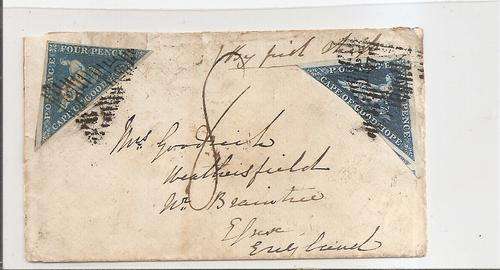 FOUR PENCE
POSTAGE
CAPE OF GOOD HOPE
By first
POSTAGE
PENCE
CAPE OF GOOD HOPE
Mrs Goodrich
Weathersfield
Nr Braintree
Essex
England